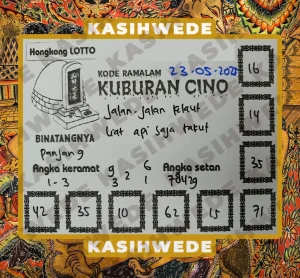 KASIHWEDE
Hongkong LOTTO
KODE RAMALAM 23-05-2025
KUBURAN CINO
Jalan-Jalan
Liat api saja takut
BINATANGNYA
Panjang
Angka keramat
1-3
9 6
3 2 1
Angka setan
78429
16
14
35
42 35 10 62 15 71
KASIHWEDE